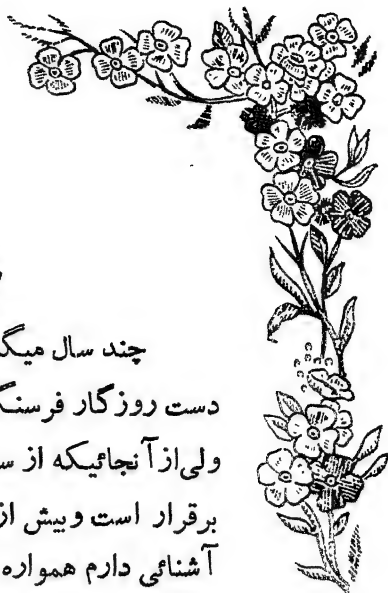 چند سال میگ
دست روزگار فرسنگ
ولی ازآنجائیکه از س
برقرار است وبیش از
آشنائی دارم همواره